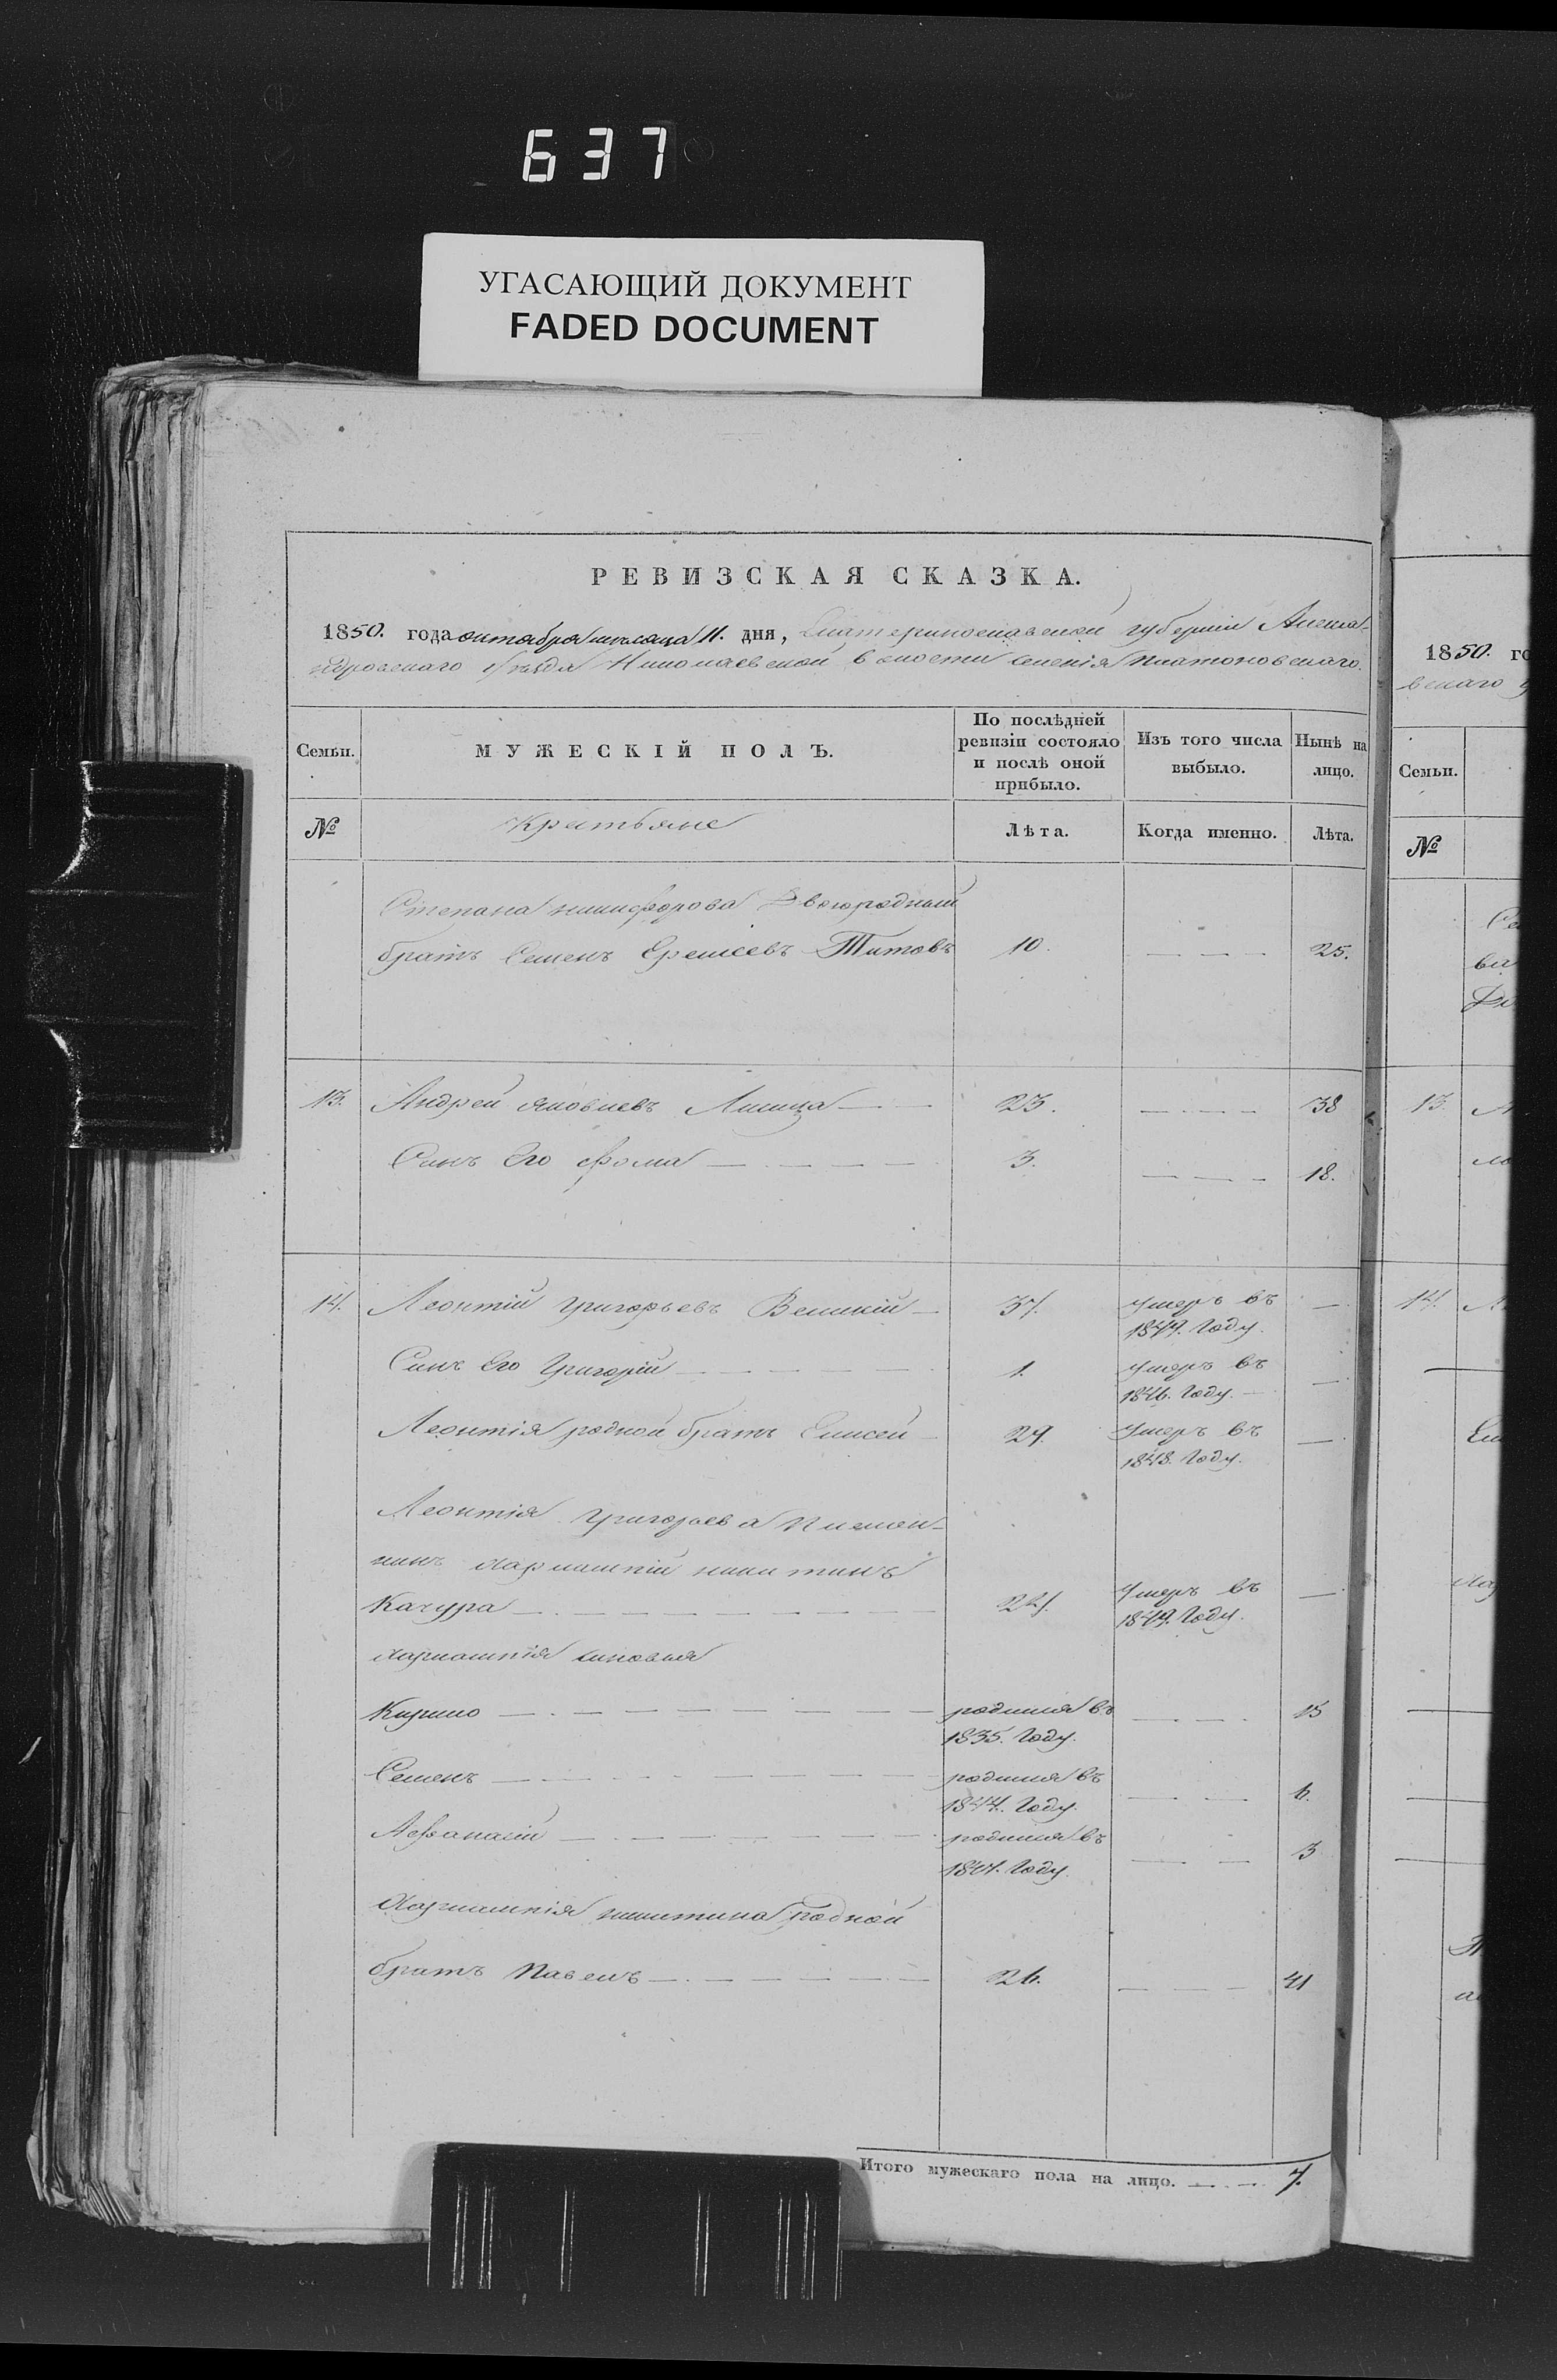 637
УГАСАЮЩИЙ ДОКУМЕНТ
FADED DOCUMENT
РЕВИЗСКАЯ СКАЗКА.
1850. года октября месяца 11. дня, Екатеринославской губерніи Алекса-
ндровскаго уѣзда Николаевской волости селенія Платоновскаго.
Семьи.
МУЖЕСКІЙ ПОЛЪ.
По послѣдней ревизіи состояло и послѣ оной прибыло.
Изъ того числа выбыло.
Нынѣ на лицо.
№
Лѣта.
Когда именно.
Лѣта.
Степана никифорова Двоюродный
братъ Семенъ Ереміевъ Титовъ 10. 25.
13. Андрей яковлевъ Лисица 23. 38
Синъ Его фома 3. 18.
14. Леонтій григорьевъ Великій 37. умеръ въ
1849. Году.
Синъ Его Григорій 1. умеръ въ
1846. Году.
Леонтія родной братъ Елисей 29. Умеръ въ
1848. Году.
Леонтія григорьева племен-
никъ харлампій никитинъ
Качура умеръ въ
1849. Году.
харлампія синовья
Кирило родился въ 15
1835. Году.
Семенъ родился въ 6.
1844. Году.
Афанасій родился въ 3
1847. Году.
Харлампія никитина родной
братъ Павелъ 26. 41
Итого мужескаго пола на лицо. 7.
1850. го
Семьи.
№
13
14.